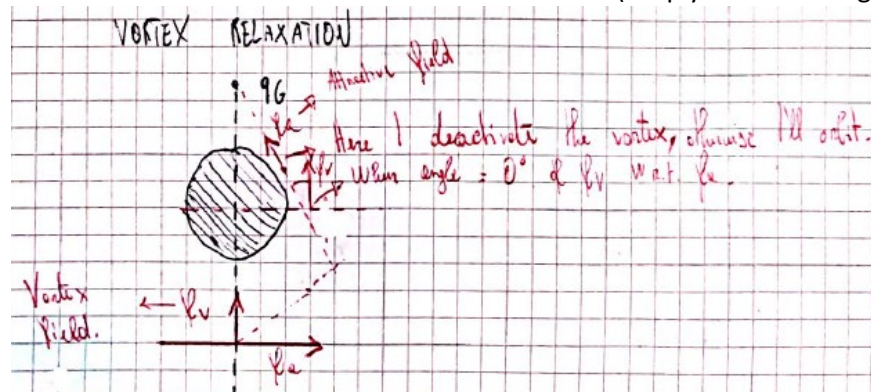 VORTEX RELAXATION
qG
fa → Attractive field
Here I deactivate the vortex, otherwise I'll orbit.
fv
When angle = 0° of fv w.r.t. fa.
Vortex ← fv
field.
fa